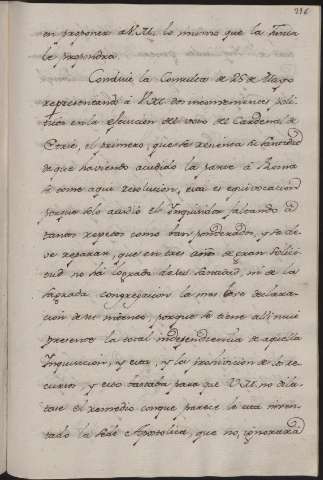 236
en proponer a V.M. lo mismo que la Junta
le propondra.
Concluie la Consulta de 25 de Mayo
representando à V.M. dos inconvenientes poli-
ticos en la execucion del voto del Cardenal de
el primero, que se revenia su Santidad
de que haviendo acudido la parte à Roma
se tome aqui resolucion, esta es equivocacion
porque solo acudió el Inquisidor faltando à
tantos respetos como han ponderado, y se de-
ve reparar, que en tres años de gran solici-
tud no ha logrado de su Santidad, ni de la
Sagrada congregacion la mas leve declara-
cion de su intento, porque se tiene alli mui
presente la total independiencia de aquella
Inquisicion, y esta, y la prohivicion de to re-
curso, y esto bastaba para que V.M. no dila-
tare el remedio conque parece le esta invi-
tando la Sede Apostolica, que no ignorará